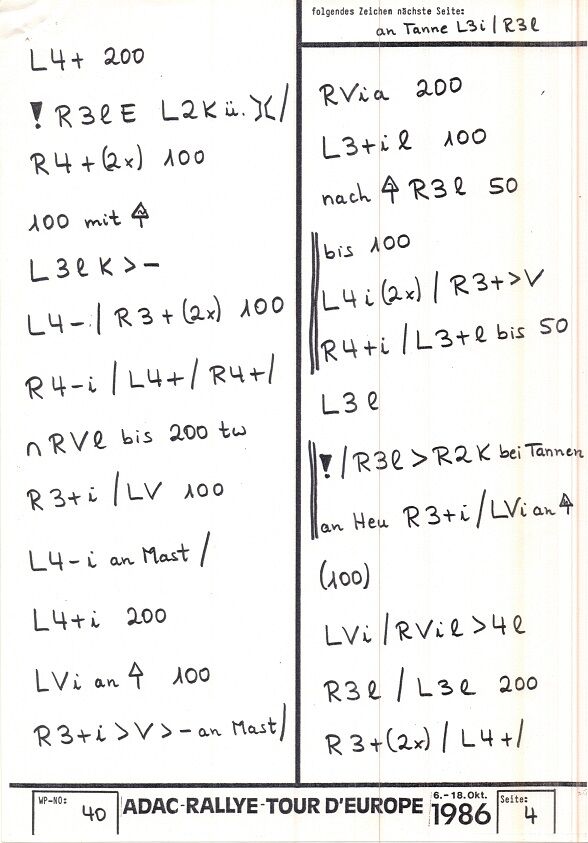 L4+ 200
! R3lE L2Kü. )(/
R4+(2x) 100
100 mit
L3lK>–
L4-/R3+(2x) 100
R4-i/L4+/R4+/
∩RVl bis 200 tw
R3+i/LV 100
L4-i an Mast/
L4+i 200
LVi an 100
R3+i>V>-an Mast/
folgendes Zeichen nächste Seite:
an Tanne L3i/R3l
RVia 200
L3+il 100
nach R3l 50
bis 100
L4i(2x)/R3+>V
R4+i/L3+l bis 50
L3l
!/R3l>R2K bei Tannen
an Heu R3+i/LVi an
(100)
LVi/RVil>4l
R3l/L3l 200
R3+(2x)/L4+/
WP-NO: 40
ADAC-RALLYE-TOUR D'EUROPE
6.–18.Okt.
1986
Seite: 4